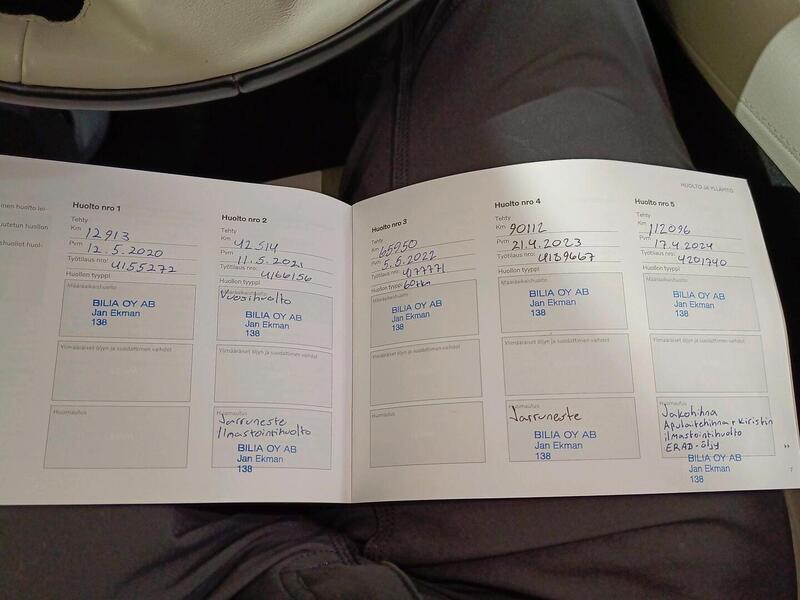 HUOLTO JA YLLÄPITO
Huolto nro 1
Tehty
Km 12913
Pvm 12.5.2020
Työtilaus nro: 4155272
Huollon tyyppi
Määräaikaishuolto
BILIA OY AB
Jan Ekman
138
Ylimääräiset öljyn ja suodattimen vaihdot
Huomautus
Huolto nro 2
Tehty
Km 42514
Pvm 11.5.2021
Työtilaus nro: 4166156
Huollon tyyppi
Määräaikaishuolto
Vuosihuolto
BILIA OY AB
Jan Ekman
138
Ylimääräiset öljyn ja suodattimen vaihdot
Huomautus
Jarruneste
Ilmastointihuolto
BILIA OY AB
Jan Ekman
138
Huolto nro 3
Tehty
Km 65950
Pvm 5.5.2022
Työtilaus nro:
Huollon tyyppi
Määräaikaishuolto
BILIA OY AB
Jan Ekman
138
Ylimääräiset öljyn ja suodattimen vaihdot
Huomautus
Huolto nro 4
Tehty
Km 90112
Pvm 21.4.2023
Työtilaus nro: 4189667
Huollon tyyppi
Määräaikaishuolto
BILIA OY AB
Jan Ekman
138
Ylimääräiset öljyn ja suodattimen vaihdot
Huomautus
Jarruneste
BILIA OY AB
Jan Ekman
138
Huolto nro 5
Tehty
Km 112096
Pvm 17.4.2024
Työtilaus nro: 4201740
Huollon tyyppi
Määräaikaishuolto
BILIA OY AB
Jan Ekman
138
Ylimääräiset öljyn ja suodattimen vaihdot
Huomautus
Jakohihna
Apulaitehihna + Kiristin
ilmastointihuolto
ERAD-öljy
BILIA OY AB
Jan Ekman
138
7